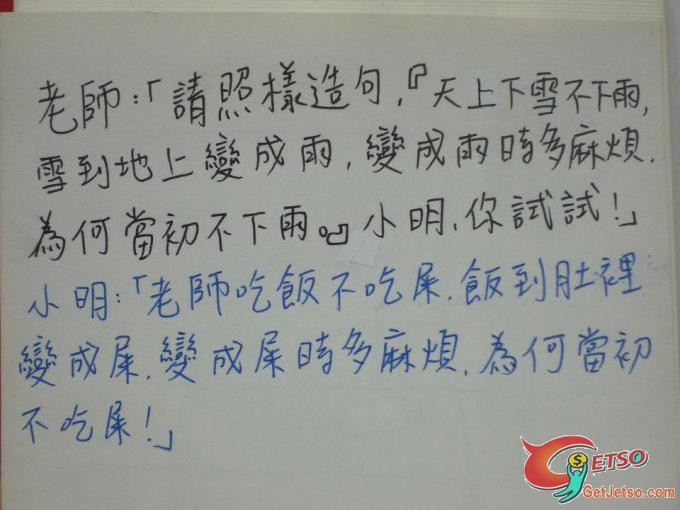 老師：「請照樣造句，『天上下雪不下雨，
雪到地上變成雨，變成雨時多麻煩，
為何當初不下雨。』小明，你試試！」
小明：「老師吃飯不吃屎，飯到肚裡
變成屎，變成屎時多麻煩，為何當初
不吃屎！」
GETSO
GetJetso.com